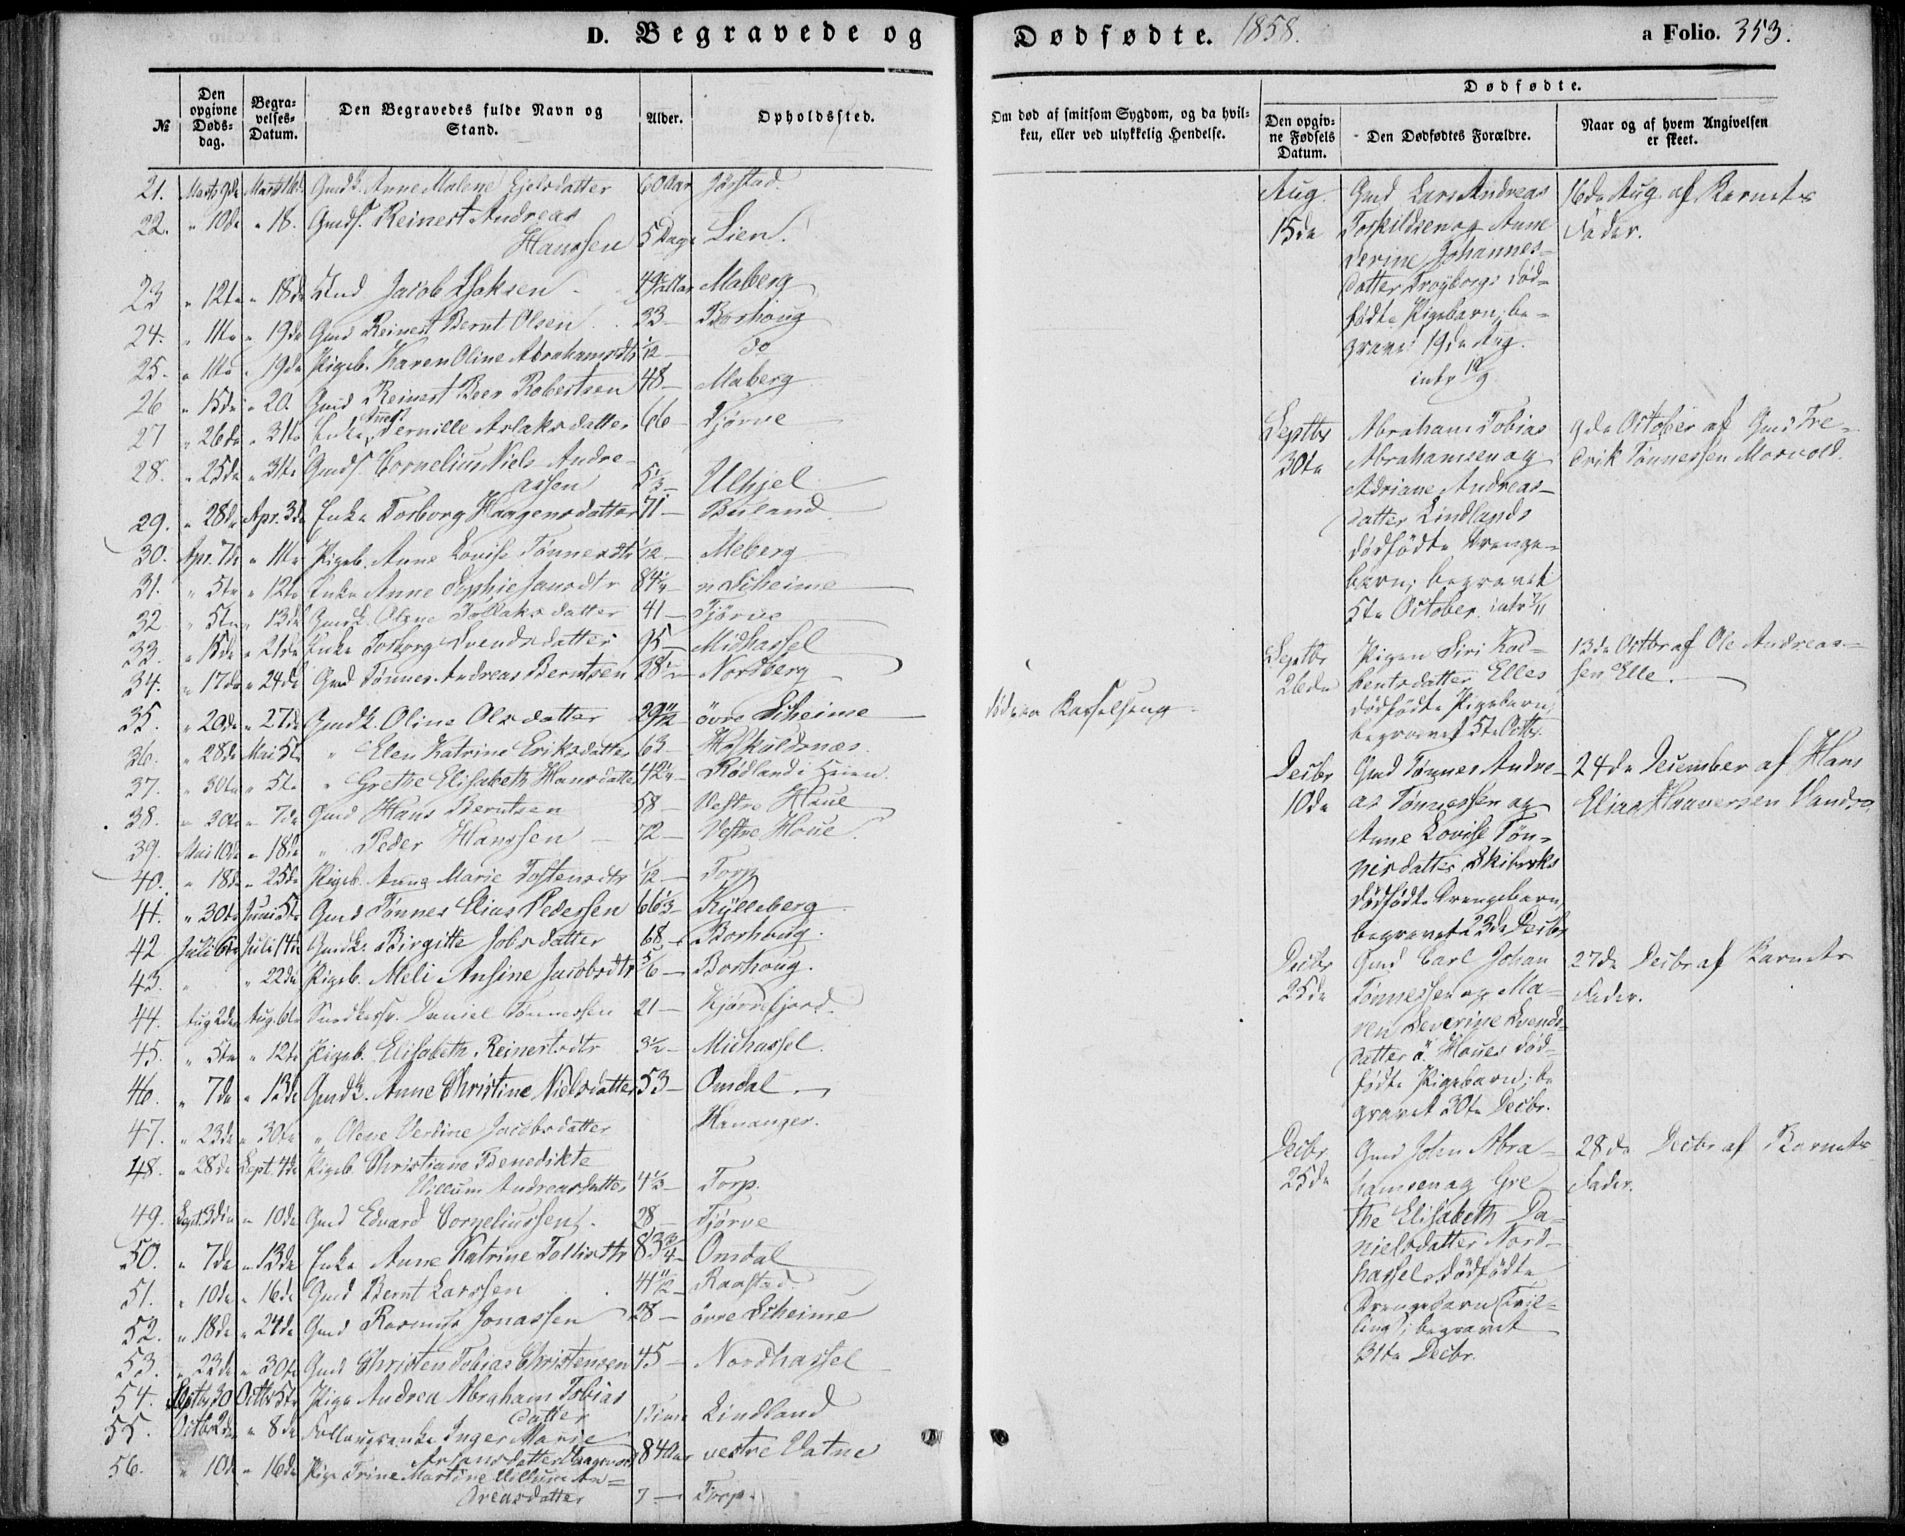 D. Begravede og
Dødfødte. 1858.
a Folio. 353.
№
Den opgivne Døds-dag.
Begra-velses-Datum.
Den Begravedes fulde Navn og Stand.
Alder.
Opholdssted.
Om død af smitsom Sygdom, og da hvil-
ken, eller ved ulykkelig Hendelse.
Dødfødte.
Den opgiv-ne Fødsels Datum.
Den Dødfødtes Forældre.
Naar og af hvem Angivelsen er skeet.
21. Marts 9de Marts Gmdk. Anne Malene 60 Aar
22. " 10de " 18. Gmds. Reinert Andreas
Hanssen 5 Dage Lien.
23 " 12te " 18de Jacob Isaksen Maberg
24. " 11te " 19de Gmd Reinert Bernt Olsen 33 — Borhoug
25. " 11te " 19de Pigeb. Karen Oline Abrahamsdtr 1/12 do
26 " 15de " 20. Gmd Reinert Robertsen 48 — Maberg
27 " 26de " 31te Enke Pernille Aslaksdatter 66 — Tjørve
28. " 25de " 31te Gmds. Cornelius Niels Andre-
assen 5 1/3 — Ulhjel
29. " 28de Apr. 3de Enke Torborg Haagensdatter 71 — Buland
30. Apr. 7de " 11te Pigeb. Anne Lovise Tønnesdtr 1/12 — Meberg
31. " 5te " 12te Enke Anne Sophie Jansdtr 84 1/4 n Skeime
32 " 5te " 13de Gmdk. Olene datter 41 — Tjørve
33. " 15de " 21de Enke Torborg Svendsdatter 95 — Midhassel
34. " 17de " 24de Gmd Tønnes Andreas Berntsen 28 1/2 — Nordberg
35. " 20de " 27de Gmdk. Oline Olsdatter 29 11/12 øvre Skeime
36. " 28de Mai 5te " Elen Katrine Eriksdatter 63 —
37. " 30te " 5te " Grethe Elisabeth Hansdatter 42 1/4 — Rødland i Heien.
38. " 30te " 7de Gmd Hans Berntsen 58 — Vestre Houe
39. Mai 10de " 18de " Peder Hanssen — 72 — Vestre Houe.
40. " 18de " 25de Pigeb. Anne Marie Tostensdtr 1/12 — Torp
41. " 30te Juni 5te Gmd Tønnes Elias Pedersen 66 1/3 — Kylleberg
42 Juli 6te Juli 14de Gmdk. Birgitte Jobsdatter 68 — Borhoug.
43. " " 22de Pigeb. Meli Ansine Jacobsdtr 5/6 — Borhoug.
44. Aug 2den Aug. 6te Daniel Tønnessen 21 — Kjørrefjord.
45. " 5te " 12te Pigeb. Elisabeth Reinertsdtr 3 1/2 — Midhassel.
46. " 7de " 13de Gmdk. Anne Christine Nielsdatter 53 — Omdal
47. " 23de " 30te " Olene Verdine Jacobsdatter Hananger.
48. " 28de Sept. 4de Pigeb Christiane Benedikte
Villum Andreasdatter 4 1/3 — Torp.
49. Sept. 3die " 10de Gmd Edvard Corneliussen 28 — Tjørve
50. " 7de " 13de Enke Anne Katrine Tollisdtr 83 3/4 — Omdal
51. " 10de " 16de Gmd Bernt Larssen 41 11/12 — Raastad
52. " 18de " 24de Gmd Rasmus Jonassen 28 — øvre Skeime
53. " 23de " 30te Gmd Christen Tobias Christensen 45 — Nordhassel
54. Septbr 30 Octbr 5te Pige Andrea Abraham Tobias
datter 1 Time Lindland
55. Octbr 2den " 8de Inger Marie
84 Aar vestre Vatne
56. " 10de " 16de Pige Trine Martine Villum An-
dreasdatter 7 — Torp.
død paa
Aug.
15de
Gmd Lars Andreas
Torkildsen og Anne
Serine Johannes-
datter Trøyborgs død-
fødte Pigebarn, be-
gravet 19de Aug.
intr 19/9
16de Aug af Barnets
Fader.
Septbr
30te
Abraham Tobias
Abrahamsen og
Adriane Andreas-
datter Lindlands
dødfødte Drenge-
barn; begravet
5te October. intr 7/11
9de October af Gmd Fre-
drik Tønnessen
Septbr
26de
Pigen Siri Kol-
bentsdatter Elles
dødfødte Pigebarn;
begravet 5te Octbr.
13de Octbr af Ole Andreas-
sen Elle.
Decbr
10de
Gmd Tønnes Andre-
as Tønnessen og
Anne Lovise Tøn-
nesdatter
dødfødte Drengebarn
begravet 23de Decbr
24de December af Hans
Elias
Decbr
25de
Gmd Carl Johan
Tønnessen og Ma-
ren Severine Svends-
datter ø. Houes død-
fødte Pigebarn; be-
gravet 30te Decbr.
27de Decbr af Barnets
Fader.
Decbr
25de
Gmd John Abra-
hamsen og Gre-
the Elisabeth Da-
nielsdatter Nord-
hassels dødfødte
Drengebarn (Tvil-
ling); begravet
31te Decbr.
28de Decbr af Barnets
Fader.